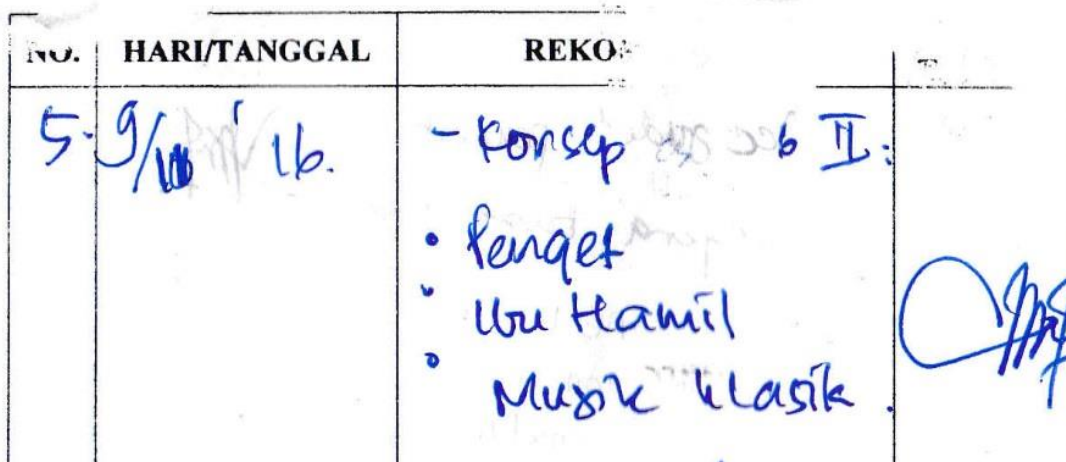 NO. HARI/TANGGAL REKO
5. 9/ '16. - Konsep b II:
• Penget
• Ibu Hamil
• Musik Klasik.